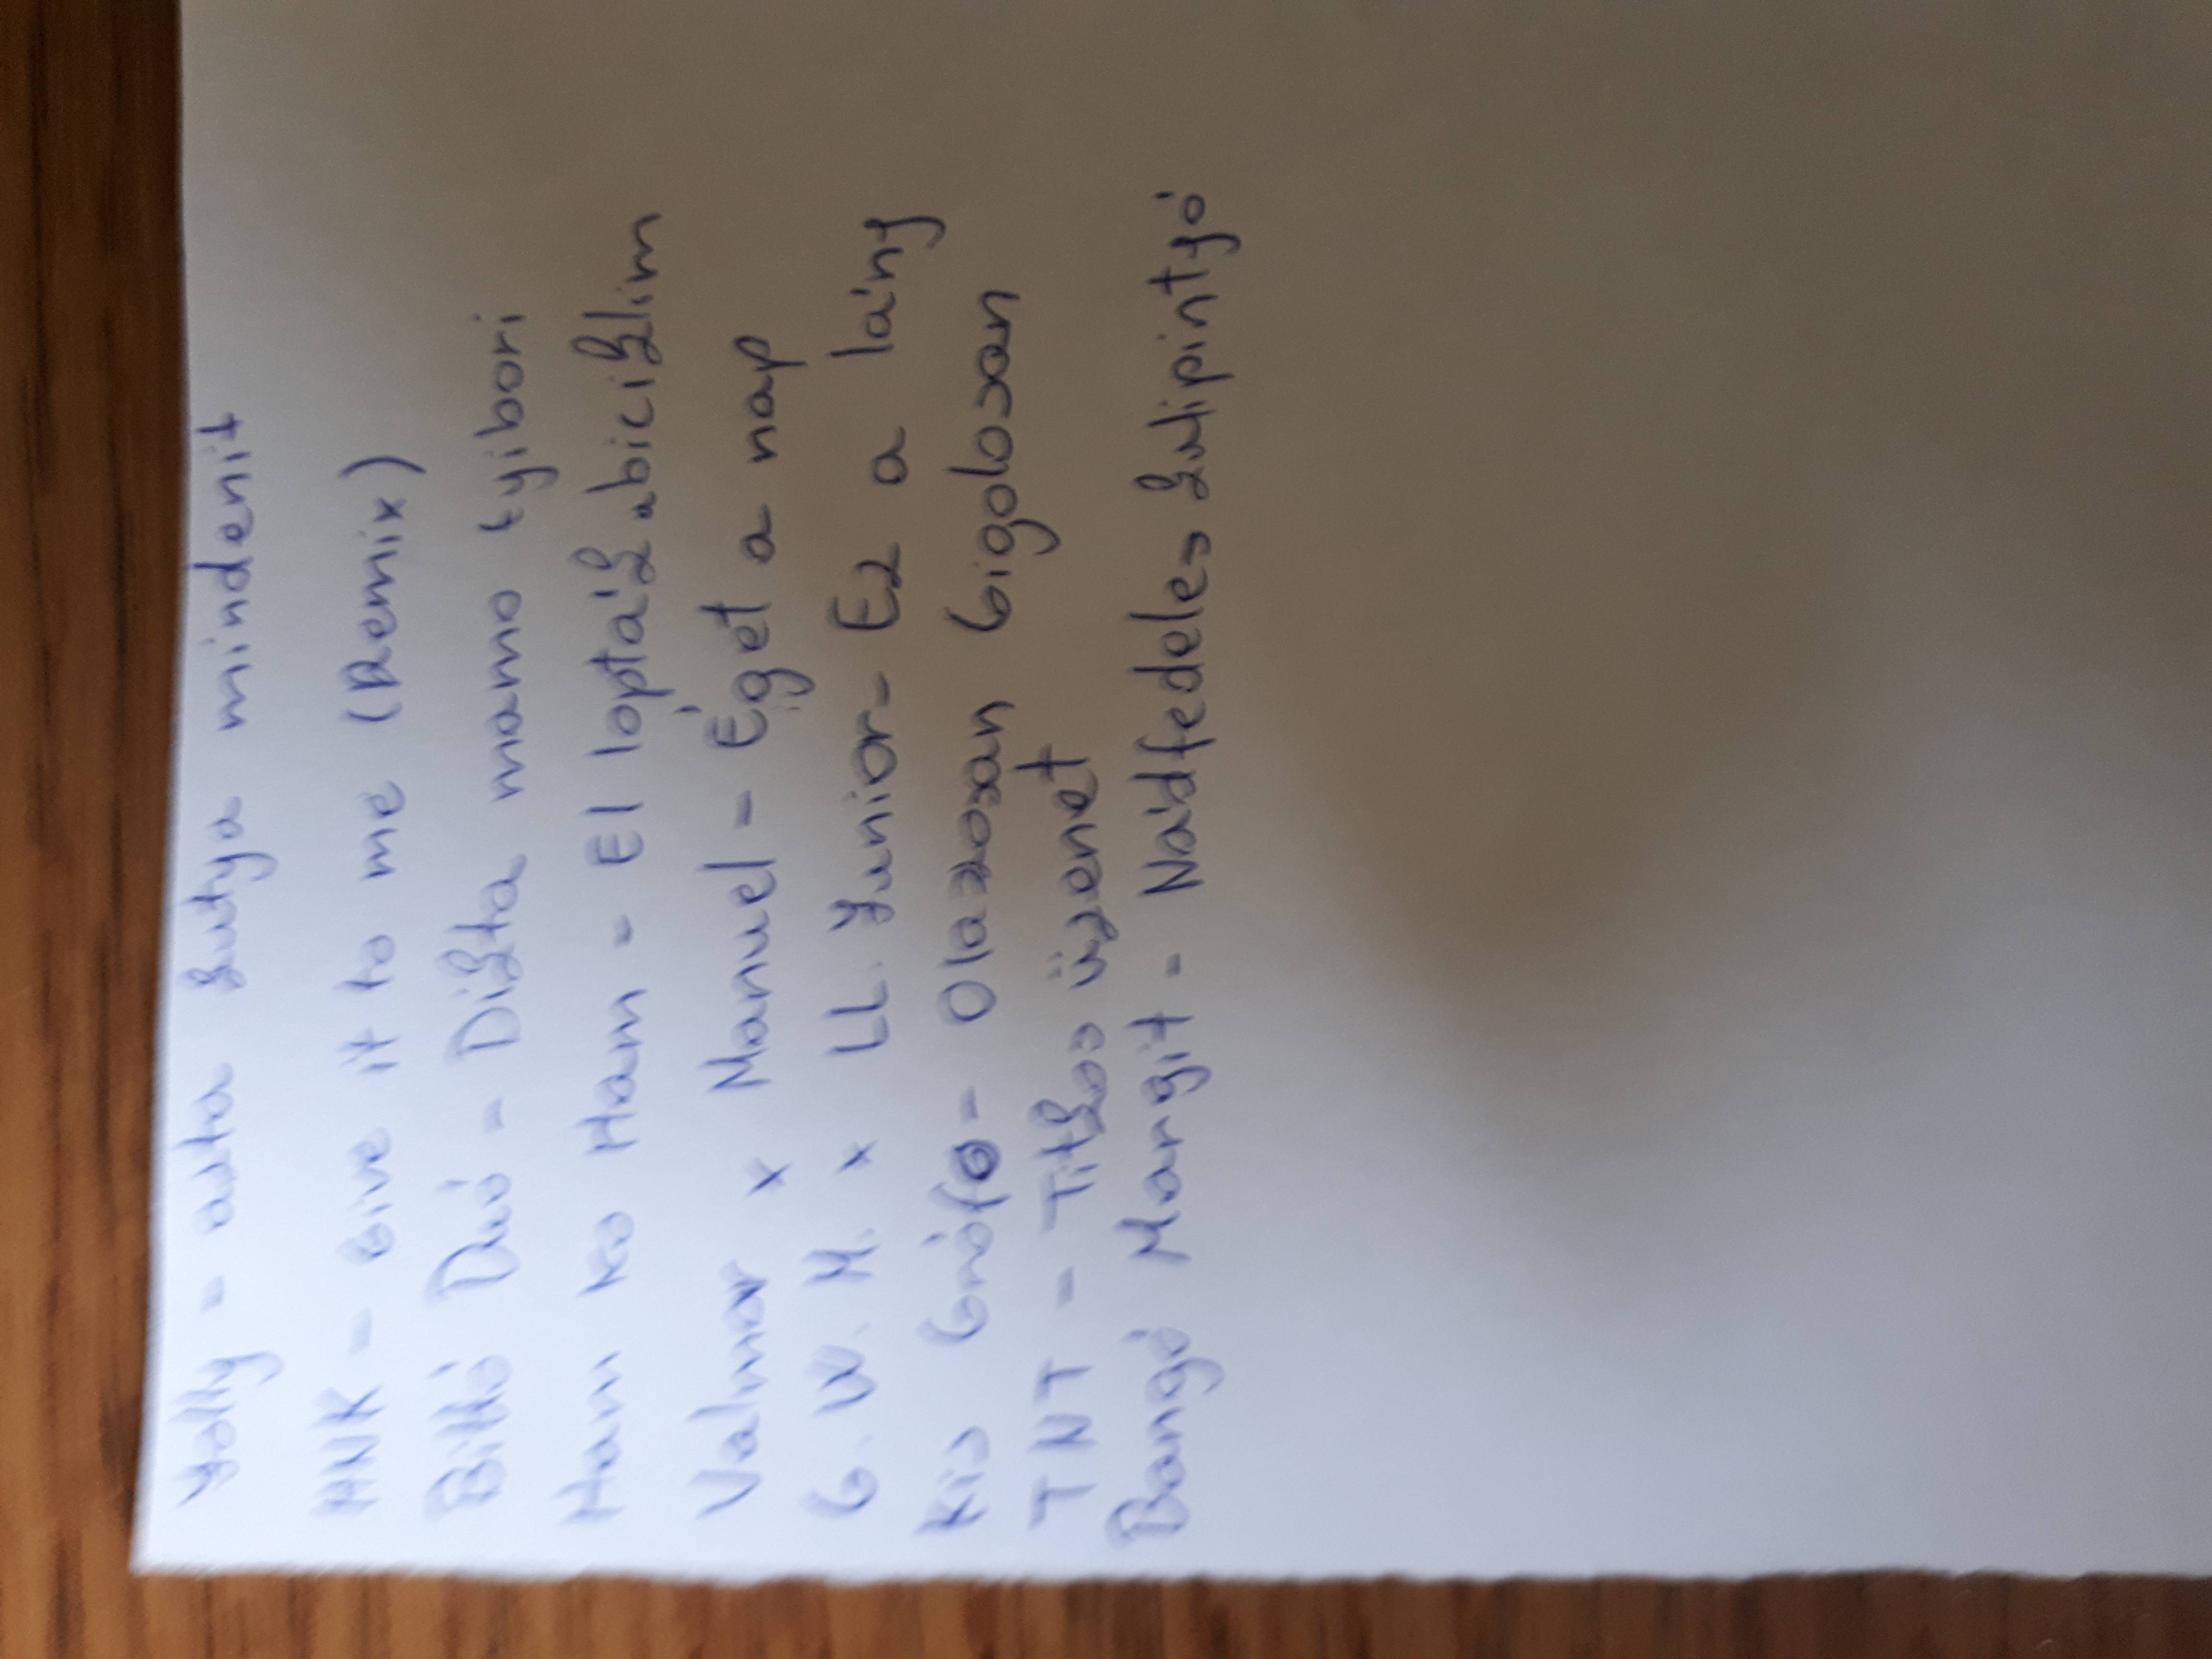 Yolly - auta kutya mindenit
HNK - Give it to me (Remix)
Bikó Duó - Dikta mamo tyibori
Ham ko Ham - El lopták a biciklim
Valmar x Manuel - Éget a nap
G. W. M. x L.L. Junior - Ez a lány
Kis Grófo - Olazosan Gigolosan
TNT - Titkos üzenet
Bangó Margit - Nádfedeles kulipintyó